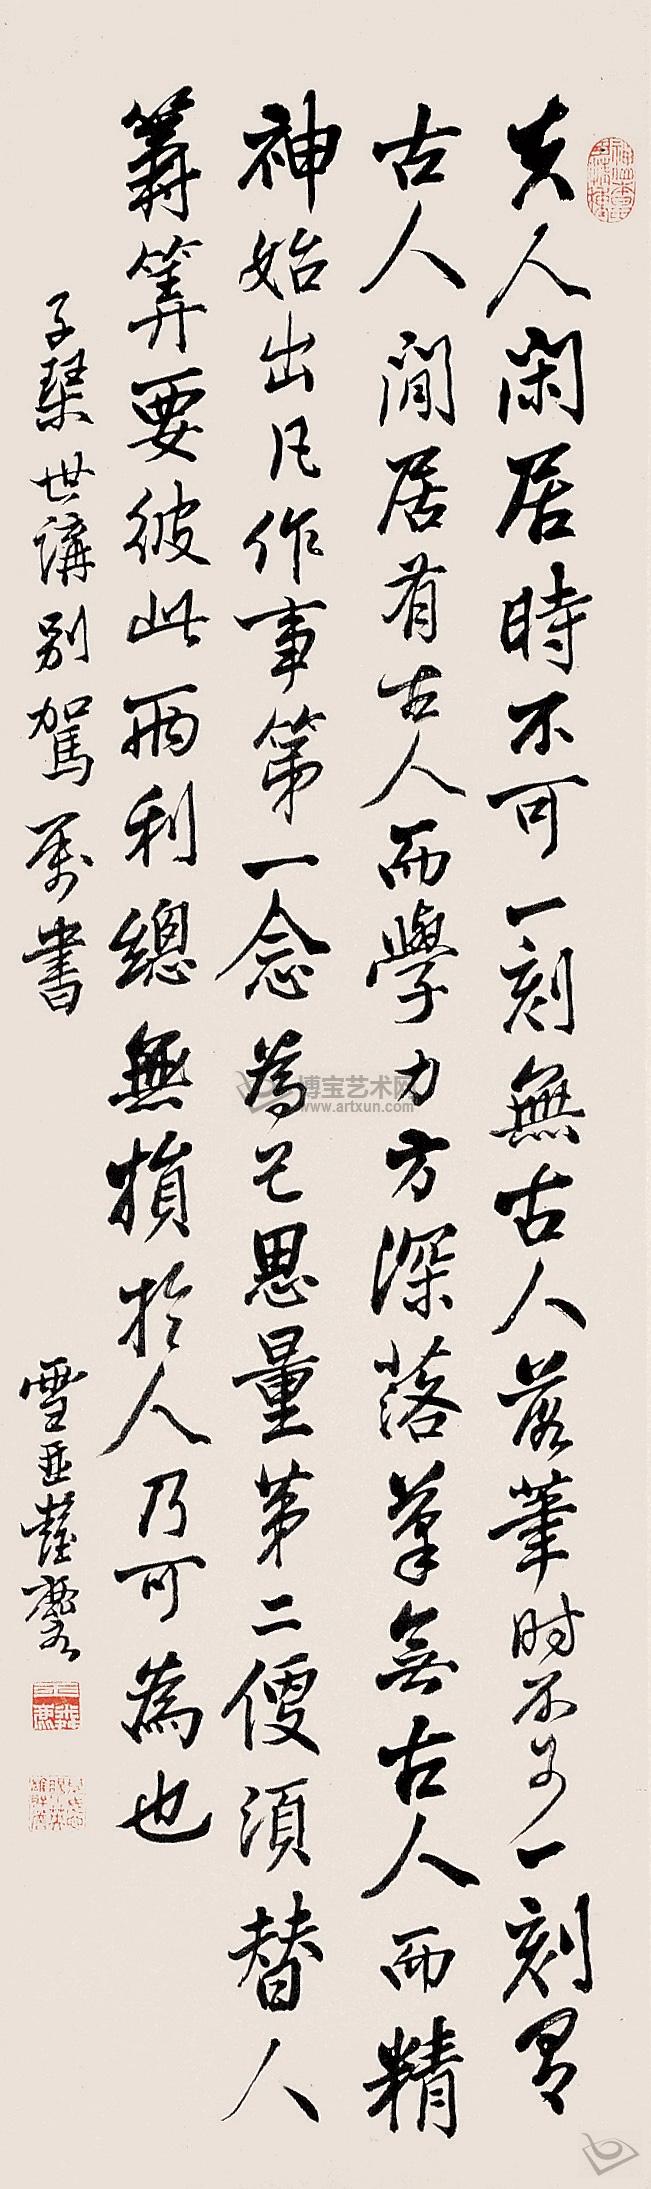 夫人閑居時不可一刻無古人落筆時不可一刻有
古人閒居有古人而學力方深落筆無古人而精
神始出凡作事第一念為己思量第二便須替人
籌算要彼此兩利總無損於人乃可為也
子琹世講別駕屬書
雪亞薩
博宝艺术网
www.artxun.com